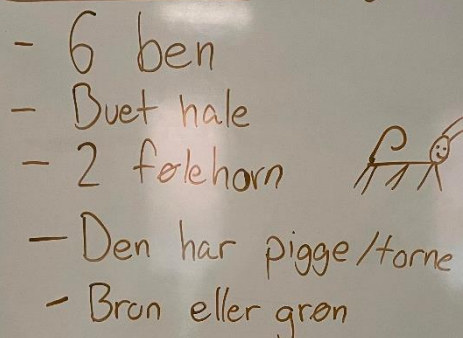 - 6 ben
- Buet hale
- 2 følehorn
- Den har pigge/torne
- Brun eller grøn